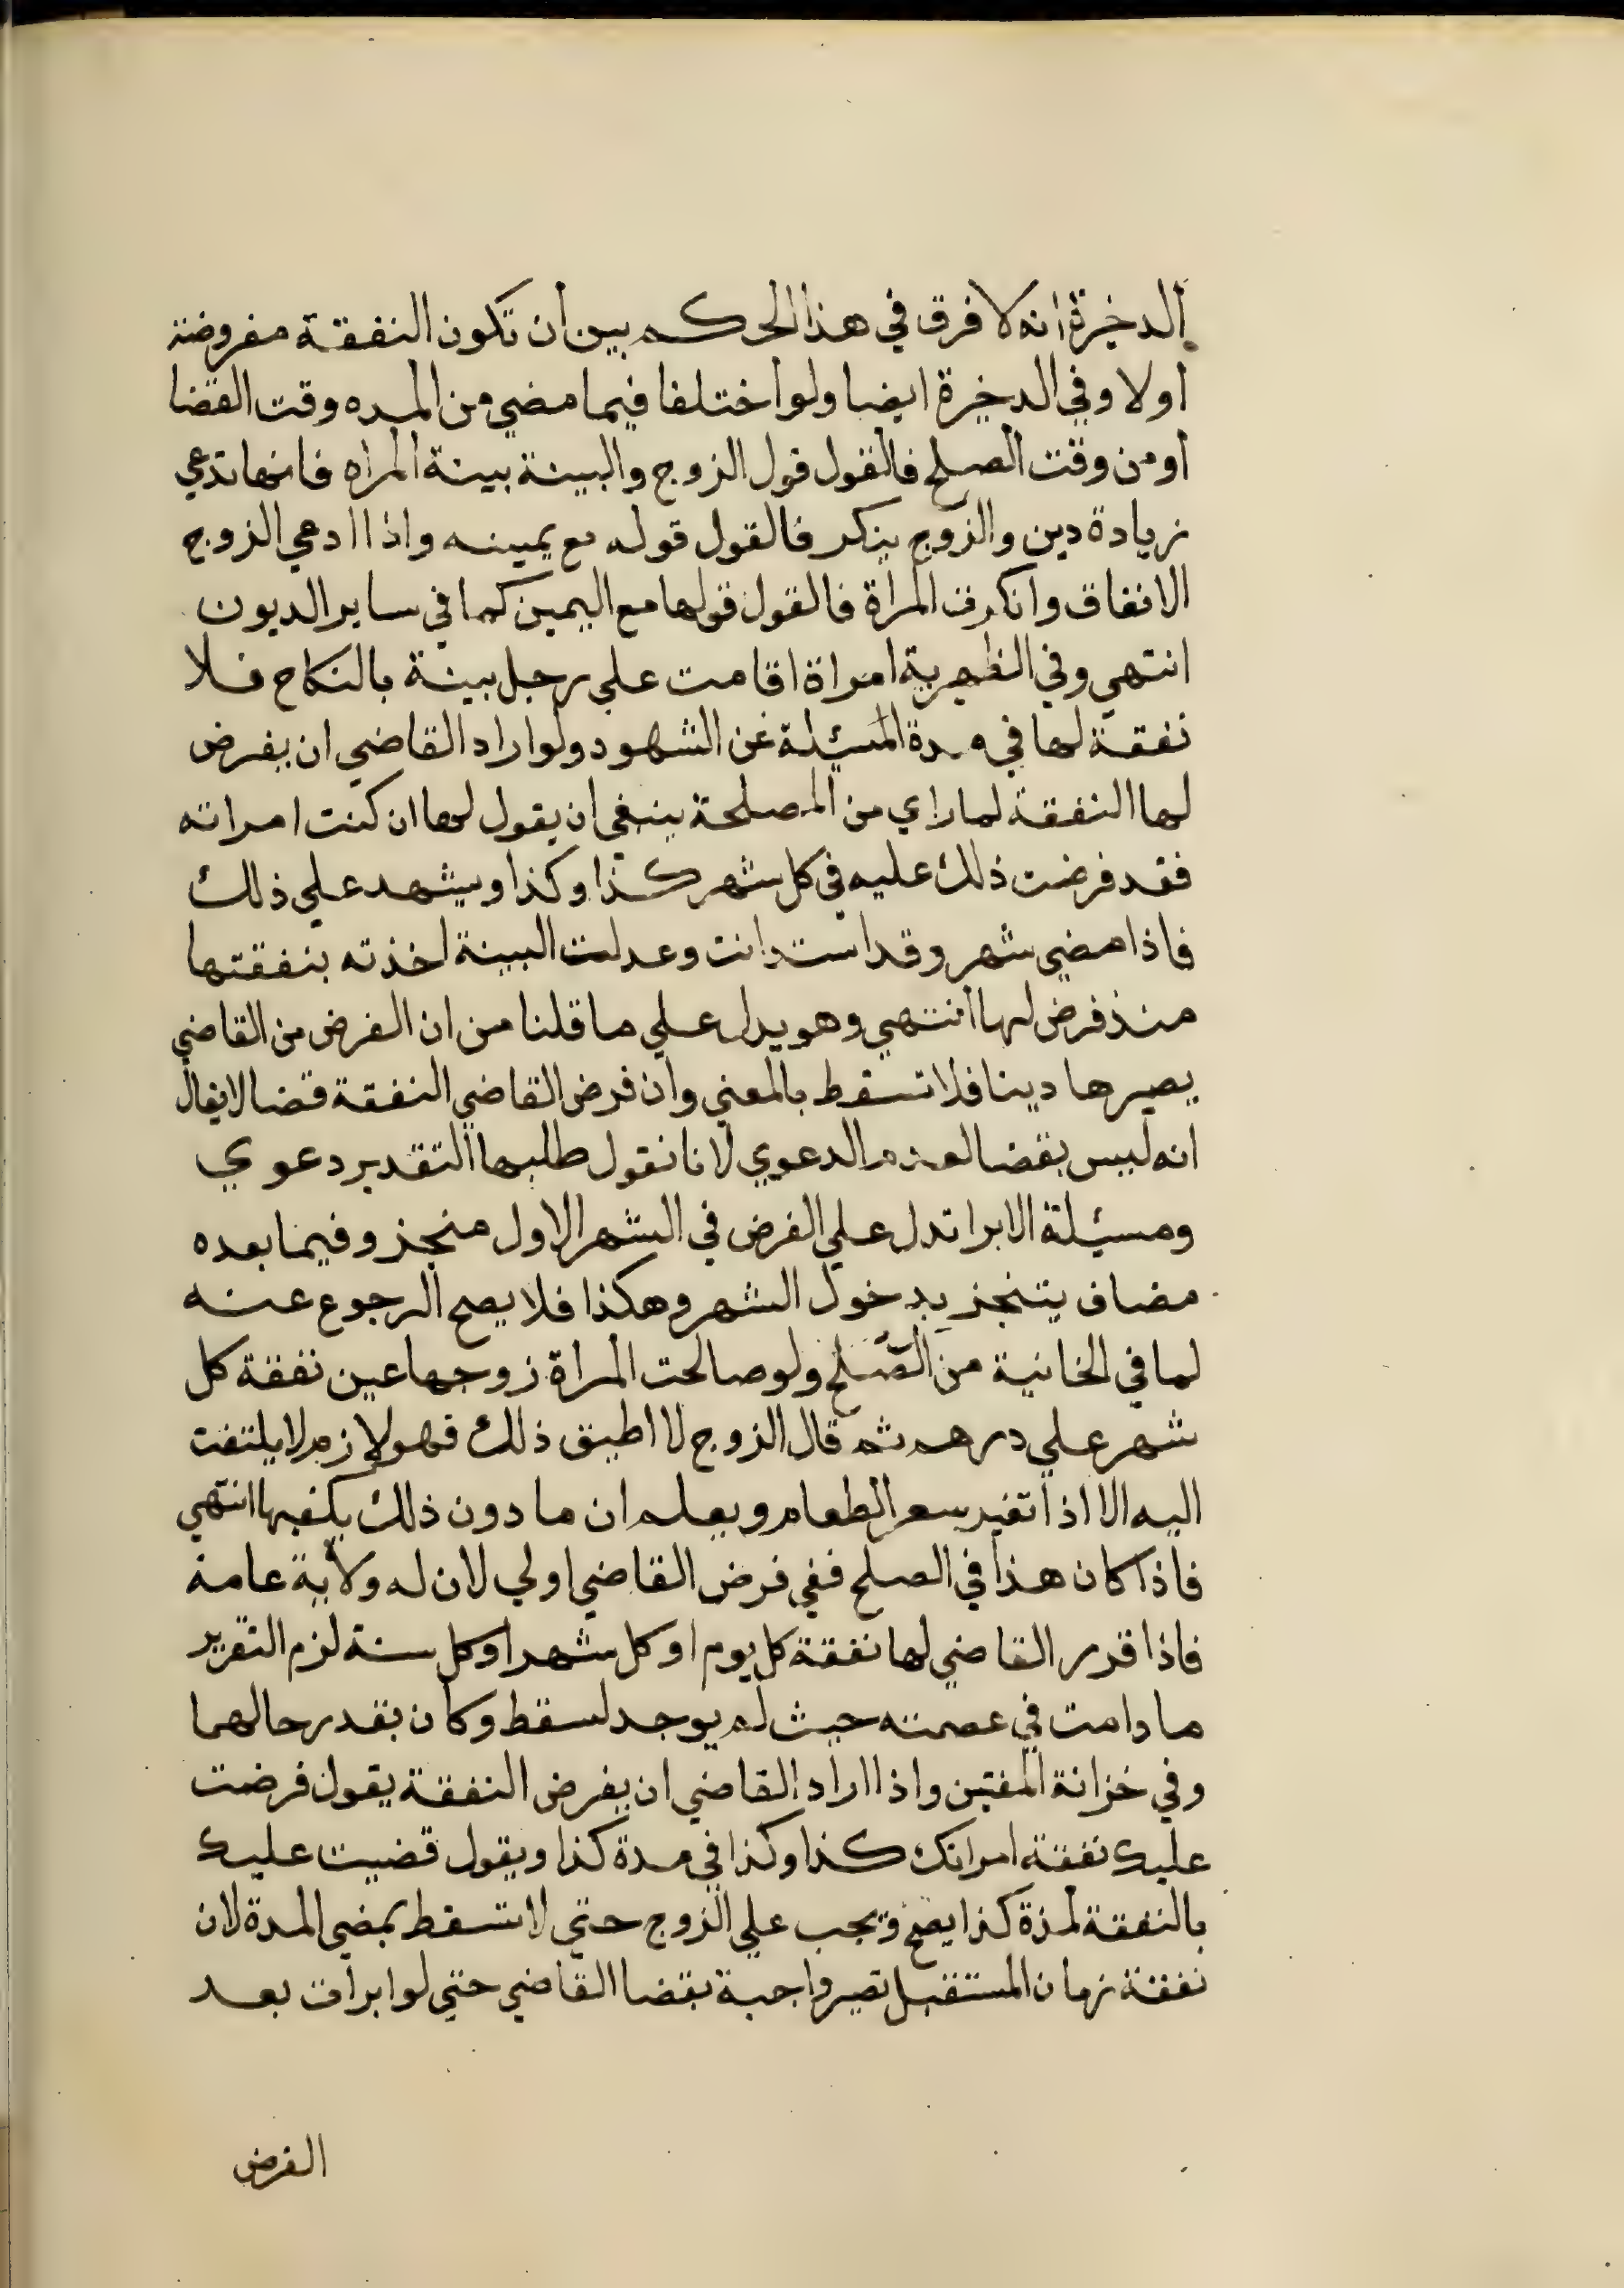 الدخيرة انه لا فرق في هذا الحكم بين ان تكون النفقة مفروضة
اولا وفي الدخيرة ايضا ولو اختلفا فيما مضي من المده وقت القضا
او من وقت الصلح فالقول قول الزوج والبينة بينة المراه فانها تدعي
زيادة دين والزوج ينكر فالقول قوله مع يمينه واذا ادعي الزوج
الانفاق وانكرت المراة فالقول قولها مع اليمين كما في ساير الديون
انتهي وفي الظهرية امراة اقامت علي رجل بينة بالنكاح فلا
نفقة لها في مدة المسئلة عن الشهود ولو اراد القاضي ان يفرض
لها النفقة لما راي من المصلحة ينبغي ان يقول لها ان كنت امراته
فقد فرضت ذلك عليه في كل شهر كذا وكذا ويشهد علي ذلك
فاذا مضي شهر وقد استدانت وعدلت البينة اخذته بنفقتها
منذ فرض لها انتهي وهو يدل علي ما قلنا من ان الفرض من القاضي
يصيرها دينا فلا تسقط بالمعني وان فرض القاضي النفقة قضا لا يقال
انه ليس بقضا لعدم الدعوي لانا نقول طلبها التقدير دعوي
ومسئلة الابرا تدل علي الفرض في الشهر الاول منجز وفيما بعده
مضاف يتنجز بدخول الشهر وهكذا فلا يصح الرجوع عنه
لما في الخانية من الصلح ولو صالحت المراة زوجها عين نفقة كل
شهر علي درهم ثم قال الزوج لا اطيق ذلك فهو لازم لا يلتفت
اليه الا اذا تغير سعر الطعام ويعلم ان ما دون ذلك يكفيها انتهي
فاذا كان هذا في الصلح ففي فرض القاضي اولي لان له ولاية عامة
فاذا قدر القاضي لها نفقة كل يوم او كل شهر او كل سنة لزم التقرير
ما دامت في عصمته حيث لم يوجد لسقط وكان بقدر حالهما
وفي خزانة المفتين واذا اراد القاضي ان يفرض النفقة يقول فرضت
عليك نفقة امراتك كذا وكذا في مدة كذا ويقول قضيت عليك
بالنفقة لمدة كذا يصح ويجب علي الزوج حتي لا تسقط بمضي المدة لان
نفقة زمان المستقبل تصير واجبة بقضا القاضي حتي لو ابرات بعد
الفرض